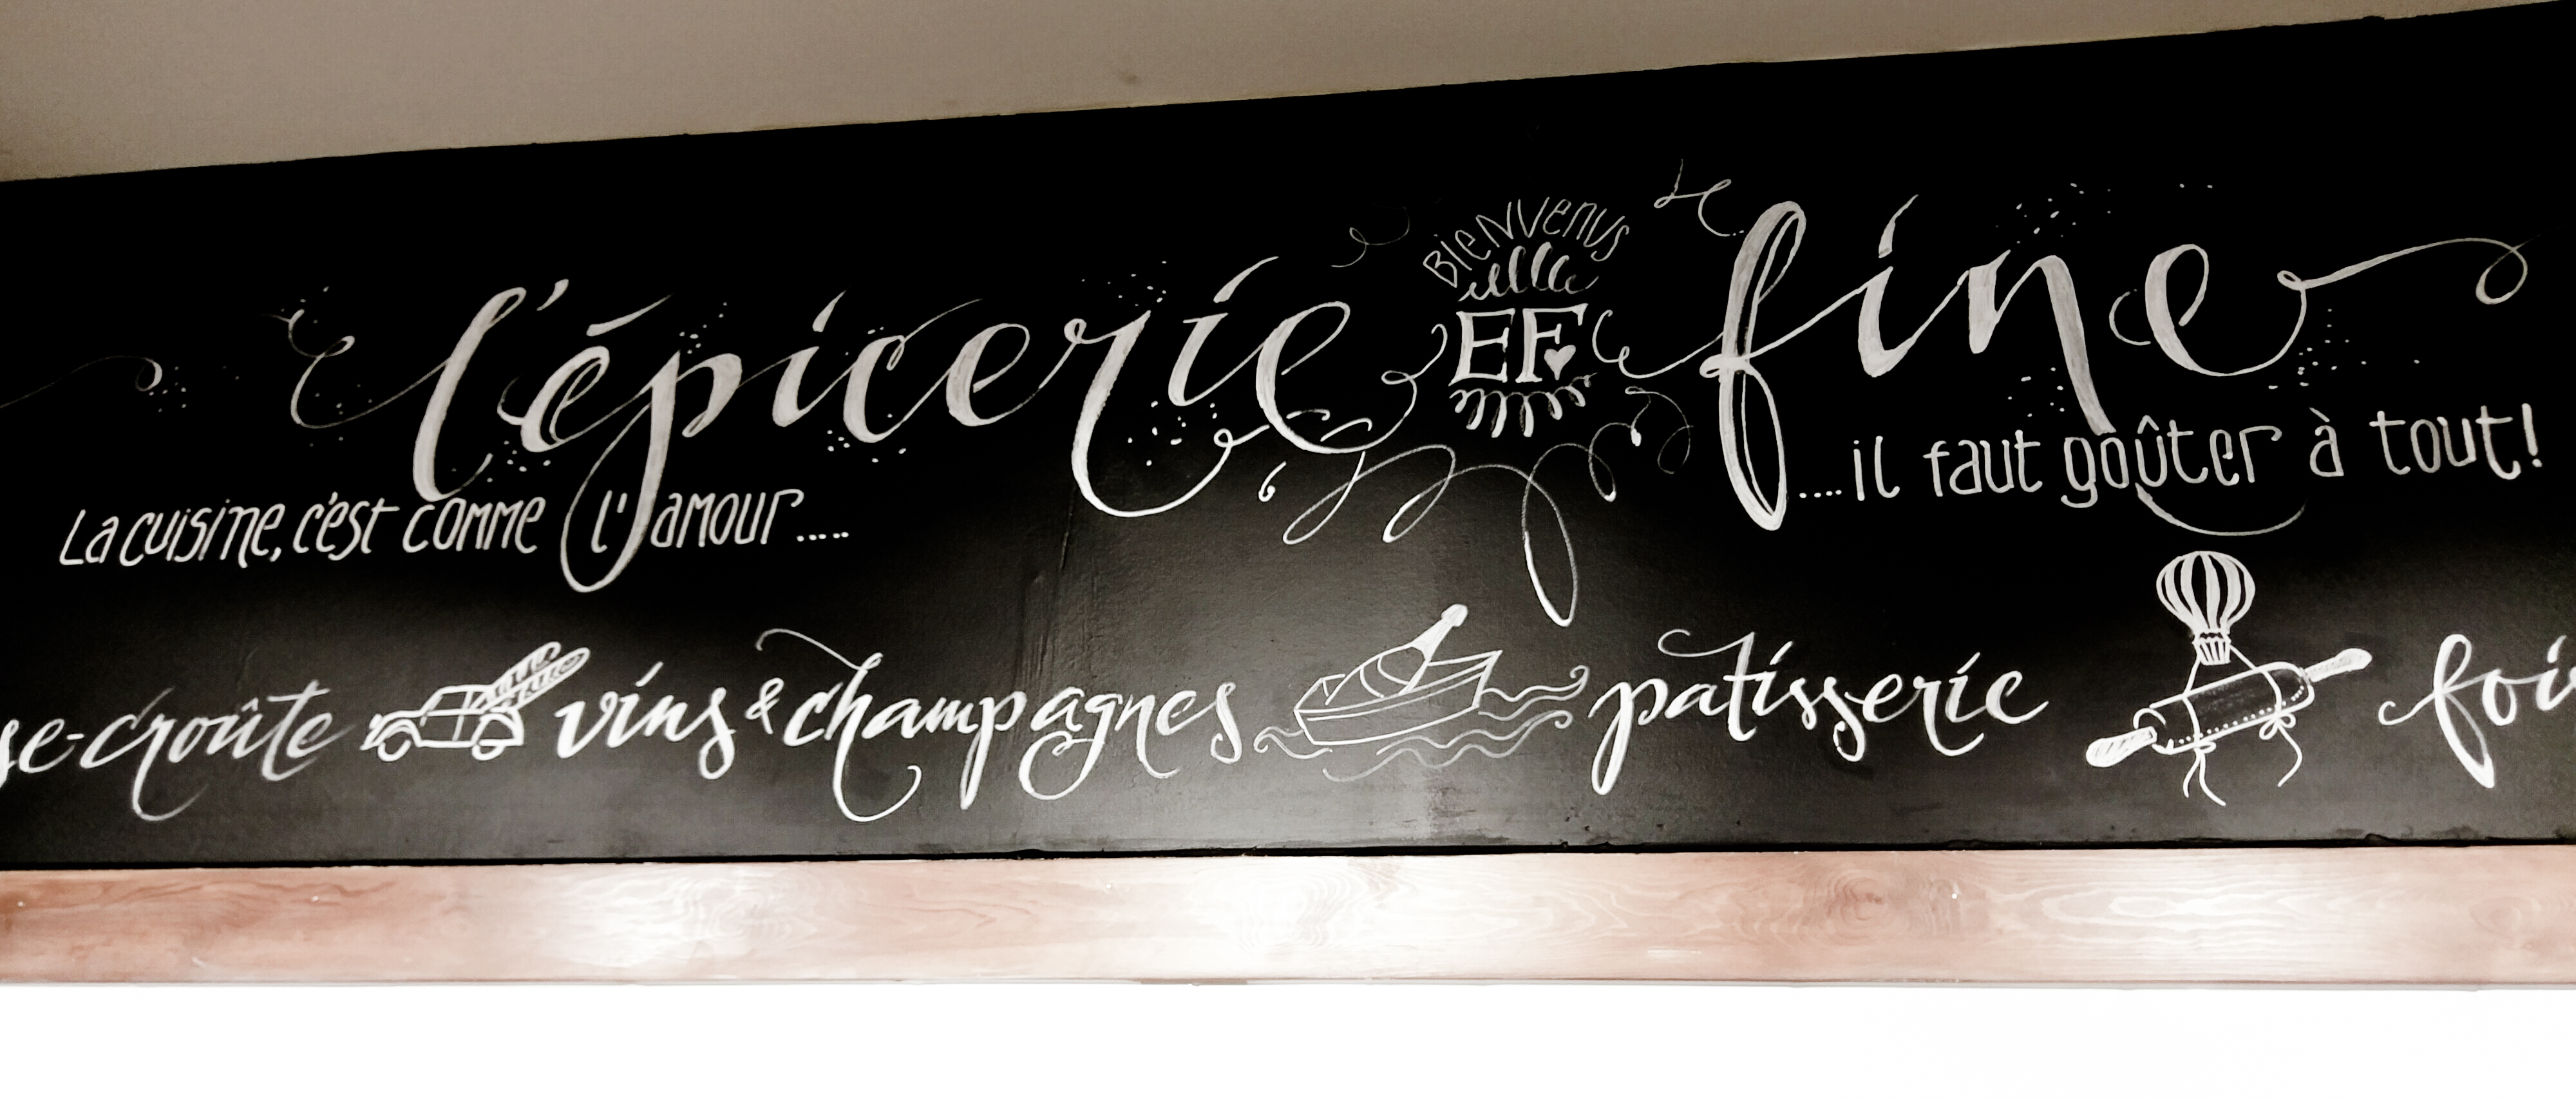 Bienvenus
l'épicerie EF fine
La cuisine, c'est comme l'amour.....
....il faut goûter à tout!
se-croûte vins & champagnes patisserie foi